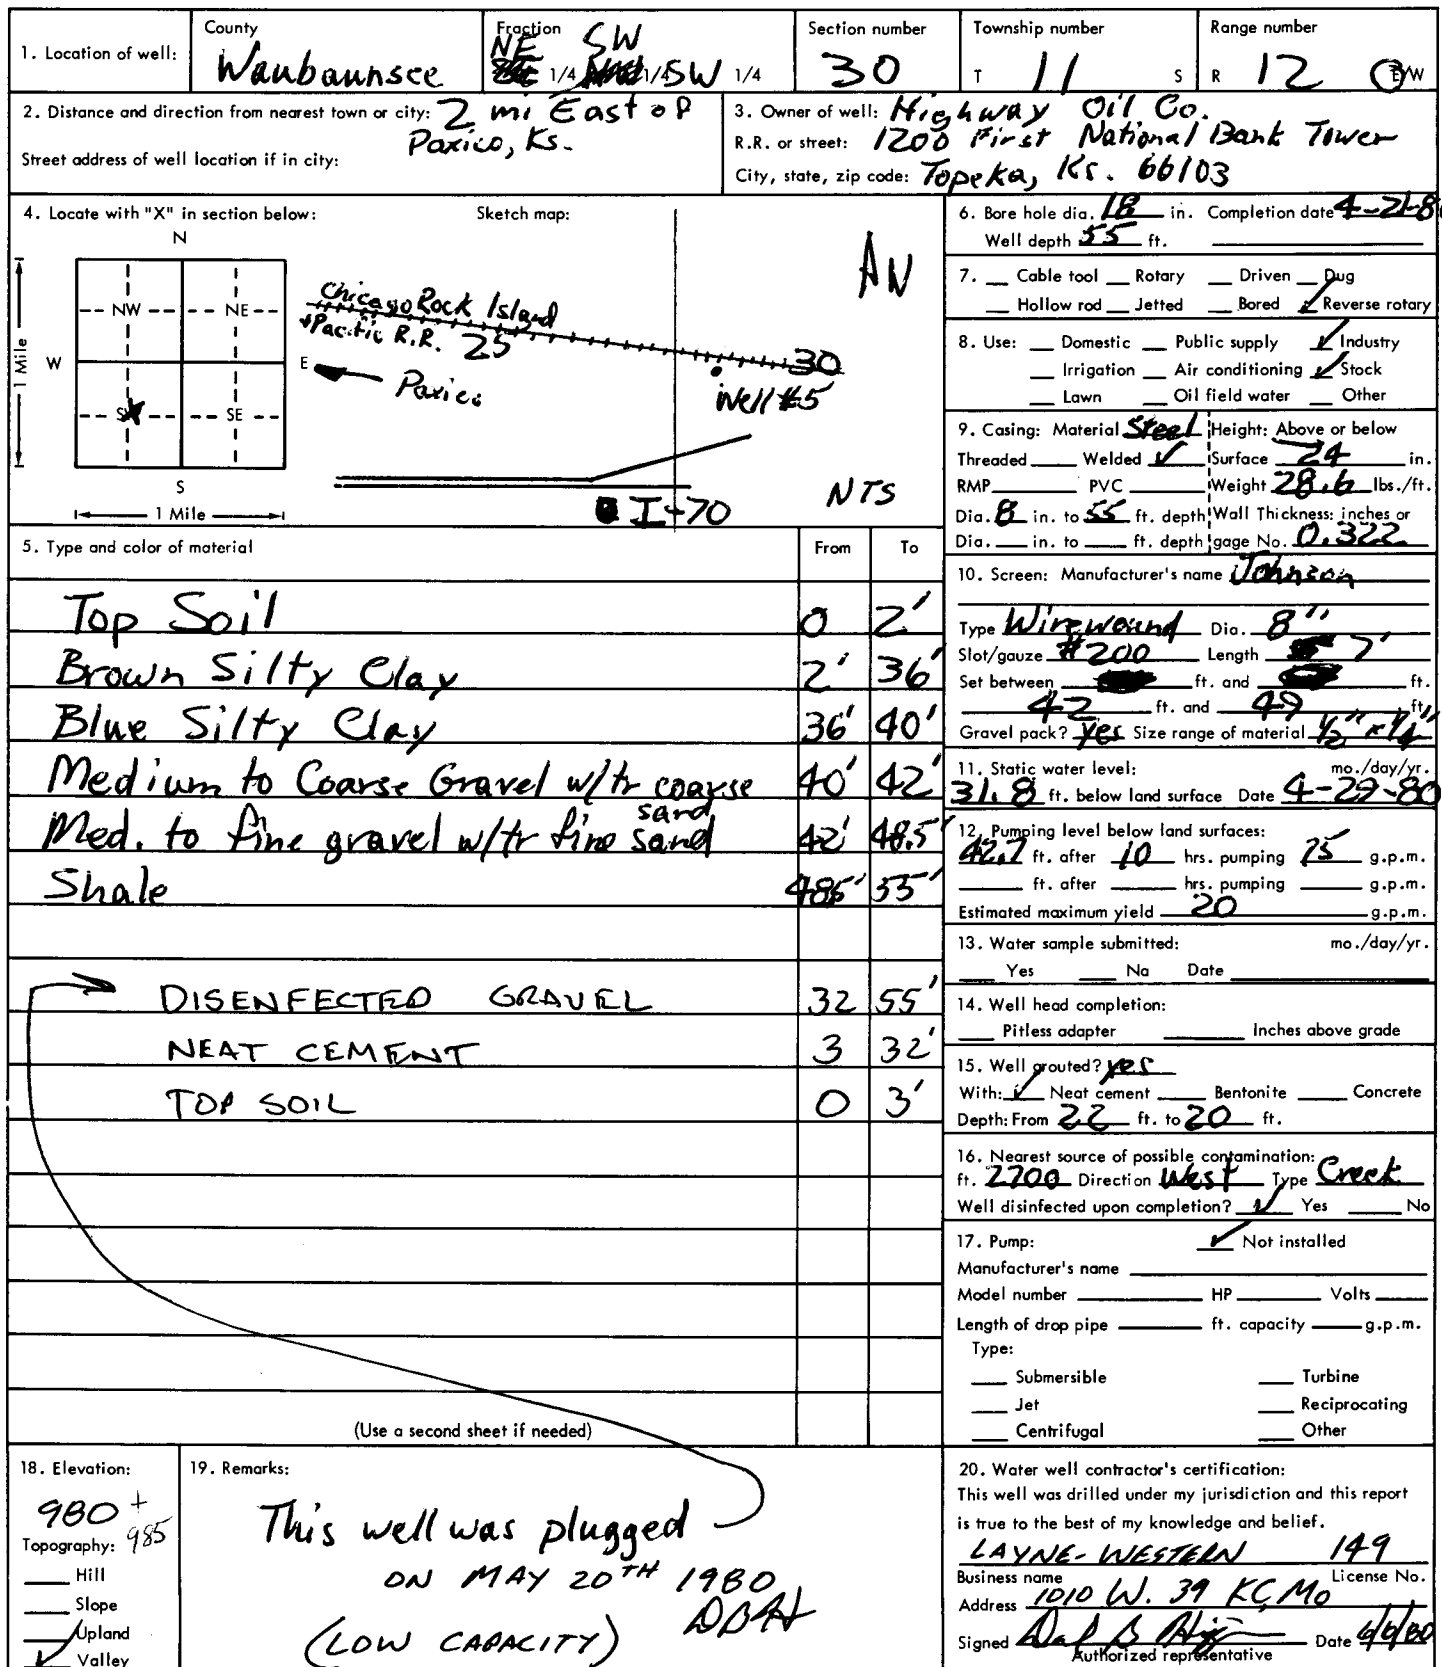 1. Location of well: County Waubaunsee Fraction NE 1/4 SW 1/4 SW 1/4 Section number 30 Township number T 11 S Range number R 12 E/W
2. Distance and direction from nearest town or city: 2 mi East of Paxico, Ks.
Street address of well location if in city:
3. Owner of well: Highway Oil Co.
R.R. or street: 1200 First National Bank Tower
City, state, zip code: Topeka, Ks. 66103
4. Locate with "X" in section below: Sketch map:
N
NW NE
W E
SW SE
S
1 Mile
1 Mile
AN
Chicago Rock Island
+Pacific R.R. 25
30
Paxico
Well #5
NTS
I-70
5. Type and color of material From To
Top Soil 0 2'
Brown Silty Clay 2' 36'
Blue Silty Clay 36' 40'
Medium to Coarse Gravel w/tr coarse sand 40' 42'
Med. to fine gravel w/tr fine sand 42' 48.5'
Shale 48.5' 55'
DISENFECTED GRAVEL 32 55'
NEAT CEMENT 3 32'
TOP SOIL 0 3'
(Use a second sheet if needed)
6. Bore hole dia. 18 in. Completion date 4-21-8
Well depth 55 ft.
7. Cable tool Rotary Driven Dug
Hollow rod Jetted Bored ✓ Reverse rotary
8. Use: Domestic Public supply ✓ Industry
Irrigation Air conditioning ✓ Stock
Lawn Oil field water Other
9. Casing: Material Steel Height: Above or below
Threaded Welded ✓ Surface 24 in.
RMP PVC Weight 28.6 lbs./ft.
Dia. 8 in. to 55 ft. depth Wall Thickness: inches or
Dia. in. to ft. depth gage No. 0.322
10. Screen: Manufacturer's name Johnson
Type Wirewound Dia. 8"
Slot/gauze #200 Length 7'
Set between ft. and ft.
42 ft. and 49 ft.
Gravel pack? Yes Size range of material 1/2" x 1/4"
11. Static water level: mo./day/yr.
31.8 ft. below land surface Date 4-29-80
12. Pumping level below land surfaces:
42.7 ft. after 10 hrs. pumping g.p.m.
ft. after hrs. pumping g.p.m.
Estimated maximum yield 20 g.p.m.
13. Water sample submitted: mo./day/yr.
Yes No Date
14. Well head completion:
Pitless adapter Inches above grade
15. Well grouted? yes
With: ✓ Neat cement Bentonite Concrete
Depth: From 22 ft. to 20 ft.
16. Nearest source of possible contamination:
ft. 2700 Direction West Type Creek
Well disinfected upon completion? ✓ Yes No
17. Pump: ✓ Not installed
Manufacturer's name
Model number HP Volts
Length of drop pipe ft. capacity g.p.m.
Type:
Submersible Turbine
Jet Reciprocating
Centrifugal Other
18. Elevation:
980 +
985
Topography:
Hill
Slope
Upland
✓ Valley
19. Remarks:
This well was plugged
ON MAY 20TH 1980
DBH
(LOW CAPACITY)
20. Water well contractor's certification:
This well was drilled under my jurisdiction and this report
is true to the best of my knowledge and belief.
LAYNE-WESTERN 149
Business name License No.
Address 1010 W. 39 KC, Mo
Signed Date 6/6/80
Authorized representative